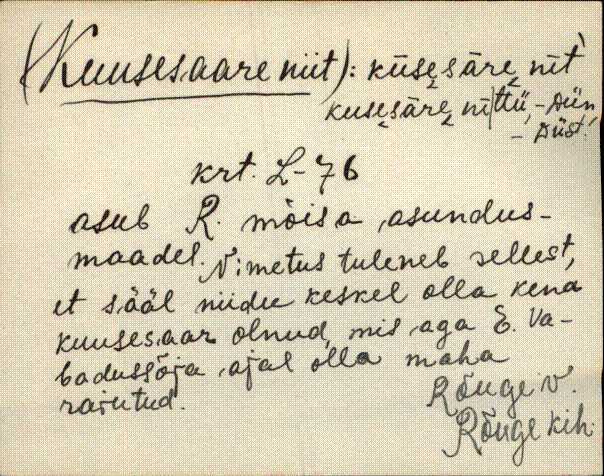 (Kuusesaare niit): kūsesāre nīt'
kusesāre nittü, -Dün
- Düst!
krt. L-76
asub R. mõisa asundus-
maadel. Nimetus tuleneb sellest,
et sääl niidu keskel olla kena
kuusesaar olnud, mis aga E. Va-
badussõja ajal olla maha
raiutud.
Rõuge v.
Rõuge kih.